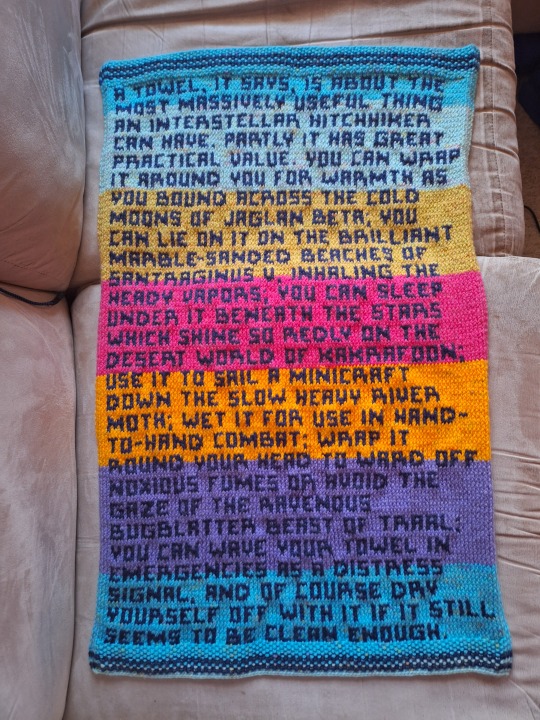 A TOWEL, IT SAYS, IS ABOUT THE
MOST MASSIVELY USEFUL THING
AN INTERSTELLAR HITCHHIKER
CAN HAVE. PARTLY IT HAS GREAT
PRACTICAL VALUE. YOU CAN WRAP
IT AROUND YOU FOR WARMTH AS
YOU BOUND ACROSS THE COLD
MOONS OF JAGLAN BETA; YOU
CAN LIE ON IT ON THE BRILLIANT
MARBLE-SANDED BEACHES OF
SANTRAGINUS V, INHALING THE
HEADY VAPORS; YOU CAN SLEEP
UNDER IT BENEATH THE STARS
WHICH SHINE SO REDLY ON THE
DESERT WORLD OF KAKRAFOON;
USE IT TO SAIL A MINICRAFT
DOWN THE SLOW HEAVY RIVER
MOTH; WET IT FOR USE IN HAND-
TO-HAND COMBAT; WRAP IT
ROUND YOUR HEAD TO WARD OFF
NOXIOUS FUMES OR AVOID THE
GAZE OF THE RAVENOUS
BUGBLATTER BEAST OF TRAAL;
YOU CAN WAVE YOUR TOWEL IN
EMERGENCIES AS A DISTRESS
SIGNAL, AND OF COURSE DRY
YOURSELF OFF WITH IT IF IT STILL
SEEMS TO BE CLEAN ENOUGH.